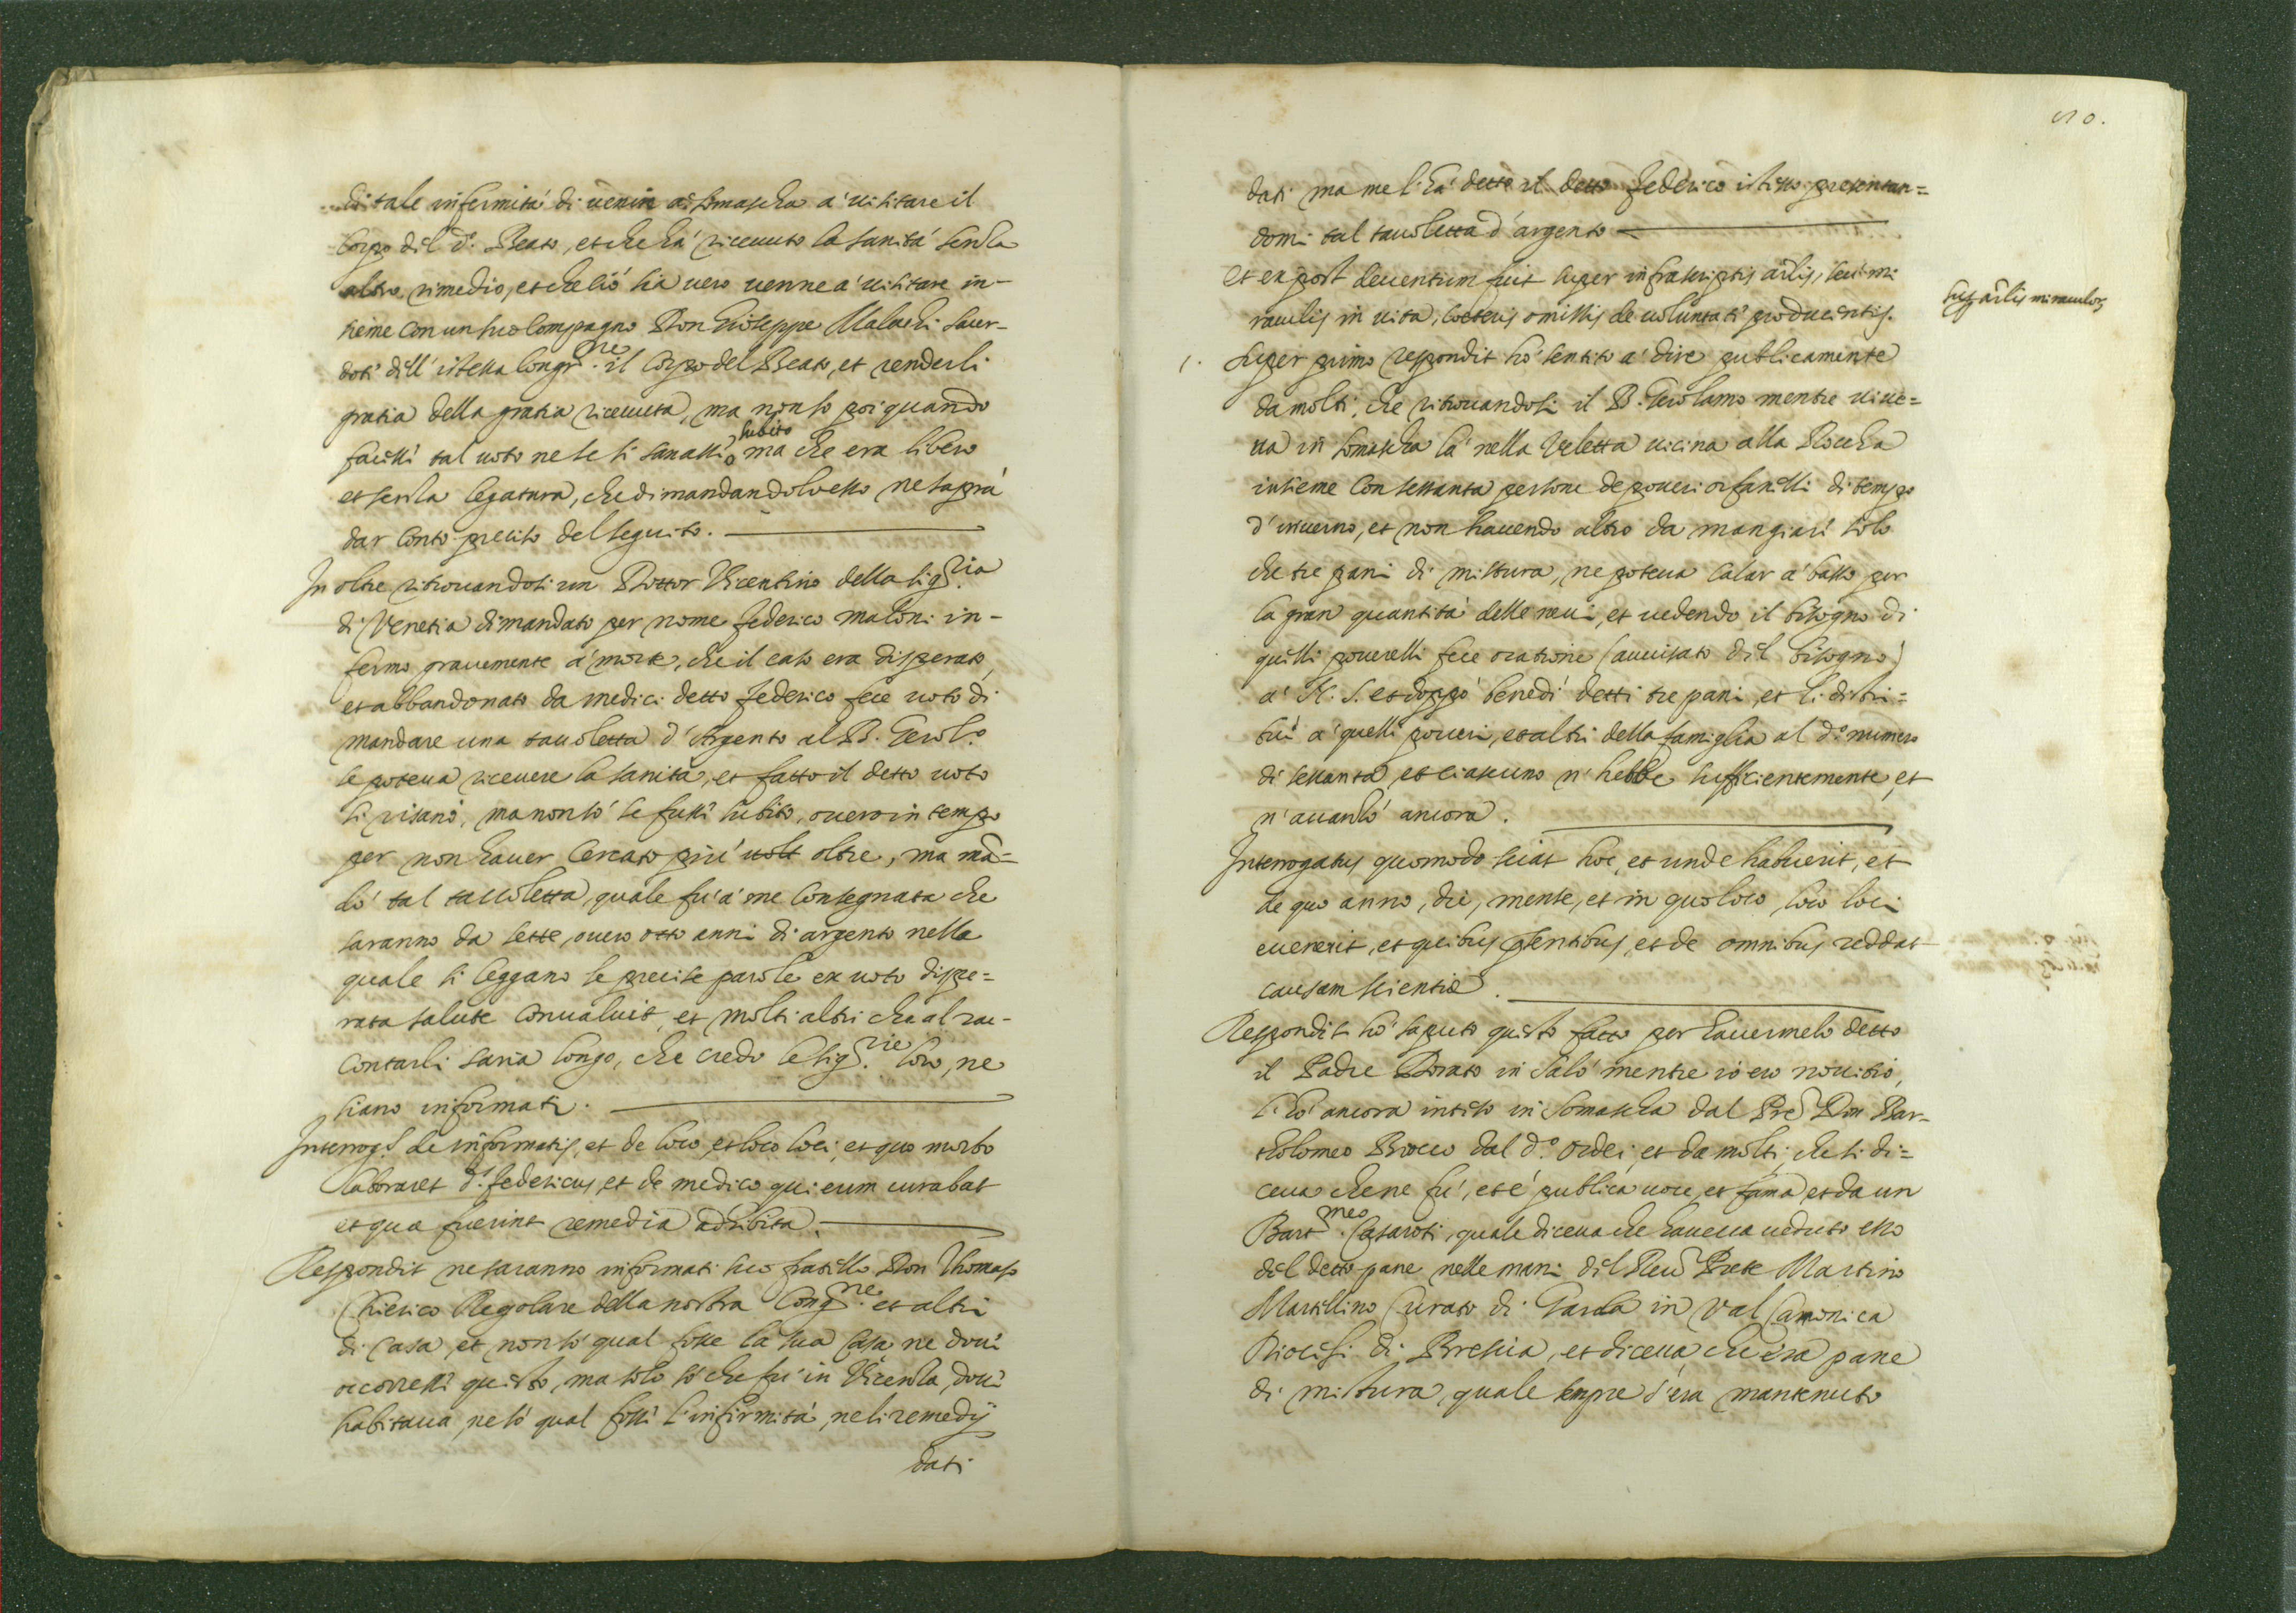 di tale infermità di venir a Somascha a' visitare il
Corpo dil d.º Beato, et che ha' ricevuto la sanità senza
altro rimedio, et che ciò sia vero venne a' visitare in-
sieme con un suo Compagno Don Gioseppe Malachi sacer-
doti dell' istessa Congr.ne il Corpo del Beato, et renderli
gratia della gratia ricevuta, ma non so poi quando
facessi tal voto ne se si sanassi subito ma che era libero
et senza legatura, che dimandandolo esso ne saprà
dar conto preciso del seguito.
In oltre ritrovandosi un Dottor Vicentino della Sig.ria
di Venetia dimandato per nome Federico Maloni in-
fermo gravemente a' morte, che il caso era disperato,
et abbandonato da medici detto Federico fece voto di
mandare una tavoletta d'Argento al B. Gerol.º
se poteva ricevere la sanità, et fatto il detto voto
si risanò, ma non sò se fussi subito, overo in tempo
per non haver cercato più oltre, ma mā=
dò tal tavoletta, quale fu' a' me consegnata che
saranno da sette, overo otto anni di argento nella
quale si leggano le precise parole ex voto dispe=
rata salute convaluit, et molti altri che al rac-
contarli saria longo, che credo le Sig.rie loro, ne
siano informati.
Interrog.s de informatis, et de loco, et loco loci, et quo morbo
laboraret d.s Federicus, et de medico qui eum curabat
et qua fuerint remedia adhibita.
Respondit ne saranno informati suo fratello Don Thomaso
Chierico Regolare della nostra Cong.ne et altri
di casa, et non sò qual fosse la sua Casa ne dove
occorressi questo, ma solo sò che fu' in Vicenza, dove
habitava, ne sò qual fossi l'infirmità, ne li remedij
dati
50.
dati ma me l'ha' detto il detto Federico istesso presentan=
domi tal tavoletta d'argento
et ex post deventum fuit super infrascriptis arlis, seu mi
raculis in vita, coeteris omissis de voluntati producentis.
sup arlis miraculor
1. Super primo respondit hò sentito a' dire publicamente
da molti, che ritrovandosi il B. Gerolamo mentre vive=
va in Somascha là nella Valetta vicina alla Roccha
insieme con sessanta persone de poveri orfanelli di tempo
d'inverno, et non havendo altro da mangiari solo
che tre pani di mistura, ne poteva calar a' basso per
la gran quantità delle nevi, et vedendo il bisogno di
quelli poverelli fece oratione (avvisato dil bisogno)
a' N. S. et doppò benedì detti tre pani, et li distri=
buì a' quelli poveri, et altri della famiglia al d.º numero
di sessanta, et ciascuno n' hebbe sufficientemente, et
n' avanzò ancora.
Interrogatus quomodo sciat hoc, et unde habuerit, et
de quo anno, die, mense, et in quo loco, loco loci
evenerit, et quibus pñtibus, et de omnibus reddat
causam scientiæ.
Respondit hò saputo questo fatto per havermelo detto
il Padre Dorato in Salò mentre io ero novitio,
l'hò ancora inteso in Somascha dal Pre Don Bar-
tholomeo Brocco dal d.º ordei, et da molti, che si di=
ceva che ne fu', et è publica voce, et fama et da un
Bart.meo Casaroti, quale diceva che haveva veduto esso
del detto pane nelle mani dil Reu Prete Martino
Martillino Curato di Garda in Val Camonica
Diocesi di Brescia, et diceva che era pane
di mistura, quale sempre s'era mantenuto